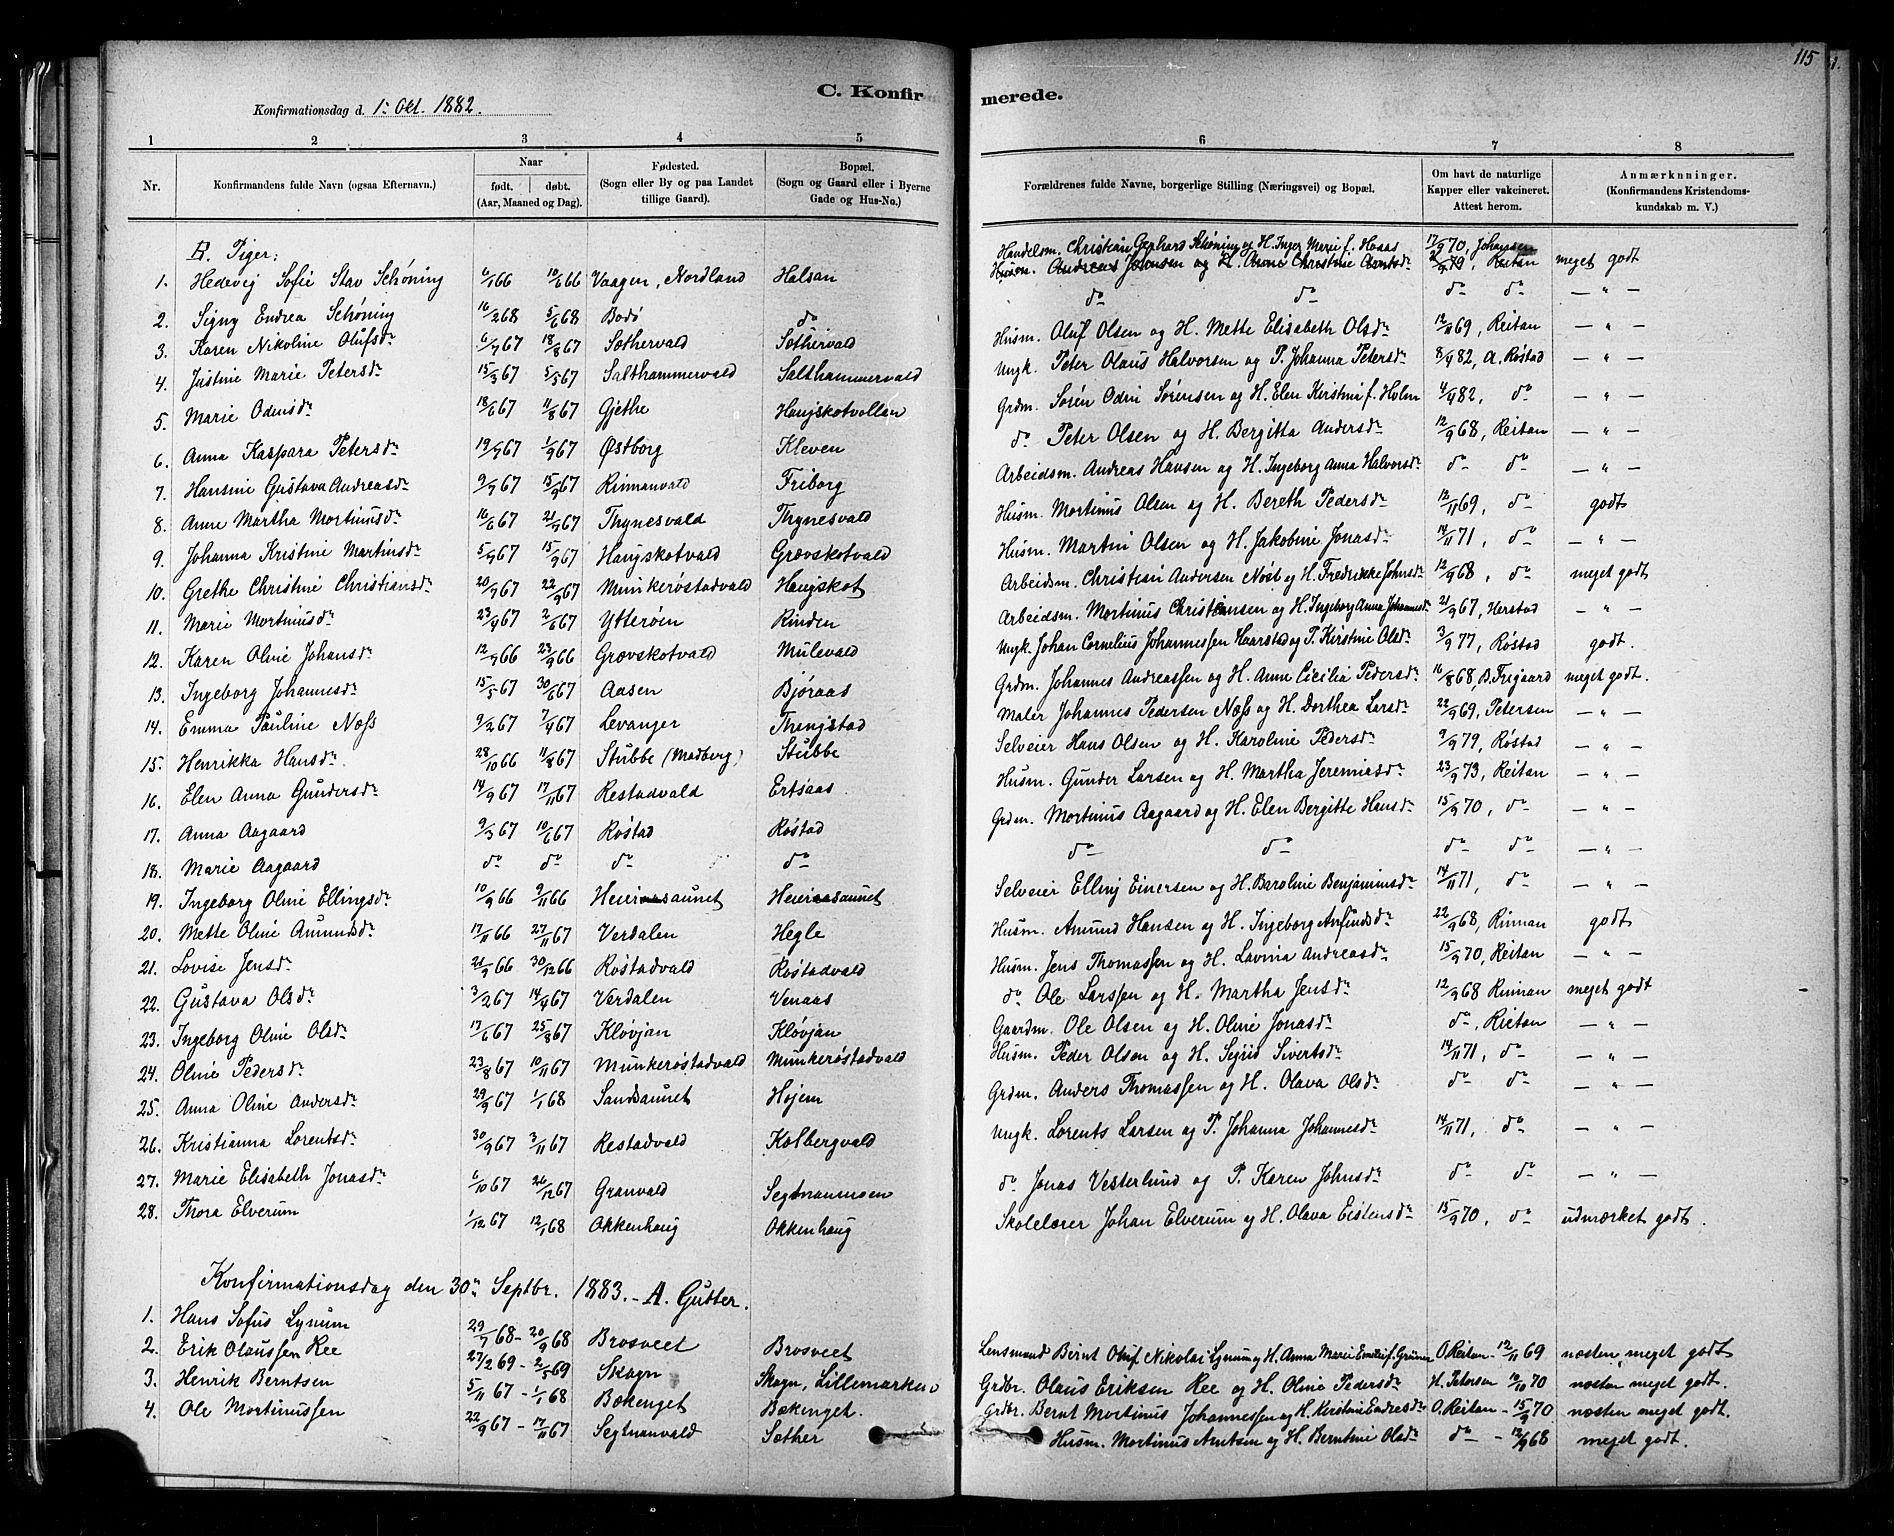 115
C. Konfirmerede.
Konfirmationsdag d. 1: Okt. 1882.
1 2 3 4 5 6 7 8
Nr. Konfirmandens fulde Navn (ogsaa Efternavn). Naar født. døbt. (Aar, Maaned og Dag). Fødested. (Sogn eller By og paa Landet tillige Gaard). Bopæl. (Sogn og Gaard eller i Byerne Gade og Hus-No.) Forældrenes fulde Navne, borgerlige Stilling (Næringsvei) og Bopæl. Om havt de naturlige Kapper eller vakcineret. Attest herom. Anmærkninger. (Konfirmandens Kristendomskundskab m. V.)
B. Piger:
1. Hedevig Sofie Stav Schøning 6/1 66 10/6 66 Vaagen, Nordland Halsan Handelsm. Christian Gerhard Schøning og H. Inger Marie f. Haas 17/9 70, Johansen meget godt
2. Signy Endrea Schøning 16/2 68 5/6 68 Bodø do do do do do — " —
3. Karen Nikoline Olufsdr 6/7 67 18/8 67 Sæthervald Søthervald Husm. Oluf Olsen og H. Mette Elisabeth Olsdr 12/11 69, Reitan — " —
4. Justine Marie Petersdr 15/3 67 5/5 67 Salthammervald Salthammervald Ungk. Peter Olaus Halvorsen og P. Johanna Petersdr 8/9 82, A. Røstad — " —
5. Marie Odinsdr 18/6 67 11/8 67 Gjethe Haugskotvollan Grdm. Søren Odin Sørensen og H. Elen Kirstine f. Holm 4/9 82, do — " —
6. Anna Kaspara Petersdr 19/7 67 1/9 67 Østborg Kleven do Peter Olsen og H. Bergitta Andersdr 12/9 68, Reitan — " —
7. Hansine Gustava Andreasdr 9/7 67 15/9 67 Rinnanvald Friborg Arbeidsm. Andreas Hansen og H. Ingeborg Anna Halvorsdr do do — " —
8. Anne Martha Mortinusdr 16/6 67 21/7 67 Thynesvald Thynesvald Husm. Mortinus Olsen og H. Bereth Pedersdr 12/11 69, do godt
9. Johanna Kristine Martinsdr 5/9 67 15/9 67 Haugskotvald Grævskotvald Husm. Martin Olsen og H. Jakobine Jonasdr 14/11 71, do — " —
10. Grethe Christine Christiansdr 20/7 67 22/9 67 Munkerøstadvald Haugskot Arbeidsm. Christian Andersen Nøst og H. Fredrikke Johnsdr 12/9 68, do meget godt
11. Marie Mortinusdr 23/4 67 2/6 67 Ytterøen Rinden Arbeidsm. Mortinus Christiansen og H. Ingeborg Anna Johannesdr 21/9 67, Herstad — " —
12. Karen Oline Johansdr 12/7 66 23/9 66 Grævskotvald Mulevald Ungk. Johan Cornelius Johannessen Haarstad og P. Kirstine Olsdr 3/9 77, Røstad godt.
13. Ingeborg Johannesdr 15/5 67 30/6 67 Aasen Bjøraas Grdm. Johannes Andreassen og H. Anne Cicilia Pedersdr 16/8 68, B. Frigaard meget godt.
14. Emma Pauline Næss 9/2 67 7/4 67 Levanger Thengstad Maler Johannes Pedersen Næss og H. Dorthea Larsdr 22/9 69, Petersen — " —
15. Henrikka Hansdr 28/10 66 11/8 67 Stubbe (Madberg) Stubbe Selveier Hans Olsen og H. Karoline Pedersdr 9/9 79, Røstad — " —
16. Elen Anna Gundersdr 14/9 67 17/11 67 Restadvald Ertsaas Husm. Gunder Larsen og H. Martha Jeremiasdr 23/9 73, Reitan — " —
17. Anna Aagaard 9/3 67 10/6 67 Røstad Røstad Grdm. Mortinus Aagaard og H. Elen Bergitte Hansdr 15/9 70, do — " —
18. Marie Aagaard do do do do do do do do — " —
19. Ingeborg Oline Ellingsdr 10/9 66 9/11 66 Heieraasaunet Heieraasaunet Selveier Elling Einersen og H. Baroline Benjaminsdr 14/11 71, do — " —
20. Mette Oline Amundsdr 17/11 66 27/11 67 Verdalen Hegle Husm. Amund Hansen og H. Ingeborg Anfindsdr 22/9 68, Rinnan godt
21. Lovise Jensdr 21/9 66 30/12 66 Røstadvald Røstadvald Husm. Jens Thomassen og H. Lavina Andreasdr 15/9 70, Reitan — " —
22. Gustava Olsdr 3/2 67 14/4 67 Verdalen Venaas do Ole Larssen og H. Martha Jensdr 12/9 68 Rinnan meget godt
23. Ingeborg Oline Olsdr 17/6 67 25/8 67 Kløvjan Kløvjan Gaardm. Ole Olsen og H. Oline Jonasdr do, Rietan — " —
24. Oline Pedersdr 23/8 67 10/11 67 Munkerøstadvald Munkerøstadvald Husm. Peder Olsen og H. Segrid Sivertsdr 14/11 71, do — " —
25. Anna Oline Andersdr 29/9 67 1/1 68 Sandsaunet Højem Grdm. Anders Thomassen og H. Olava Olsdr do do — " —
26. Kristianna Lorentsdr 30/9 67 3/11 67 Restadvald Kolbergvald Ungk. Lorents Larsen og P. Johanna Johannesdr 14/11 71, do — " —
27. Marie Elisabeth Jonasdr 6/10 67 26/12 67 Granvald Segtnanmoen do Jonas Vesterlund og P. Karen Johnsdr do do — " —
28. Thora Elverum 1/12 67 12/1 68 Okkenhaug Okkenhaug Skolelærer Johan Elverum og H. Olava Eistensdr 15/9 70, do udmærket godt.
Konfirmationsdag den 30te Septbr. 1883. – A. Gutter.
1. Hans Sofus Lynum 29/7 68 – 20/9 68 Brosveet Brosveet Lensmand Bernt Oluf Nikolai Lynum og H. Anna Marie Emilie f. Grüner O. Reitan – 12/11 69 næsten meget godt
2. Erik Olaussen Ree 27/2 69 – 2/5 69 Skogn Skogn, Lillemarken Grdbr. Olaus Eriksen Ree og H. Oline Pedersdr H. Petersen 10/10 70 næsten meget godt.
3. Henrik Berntsen 5/11 67 – 1/1 68 Bækenget Bækenget. Grdbr. Bernt Mortinus Johannessen og H. Kirstine Endresdr O. Reitan – 15/9 70 næsten meget godt.
4. Ole Mortinussen 22/9 67 – 17/11 67 Segtnanvald Sæther Husm. Mortinus Arntsen og H. Berntine Olsdr do – 12/9 68 meget godt.